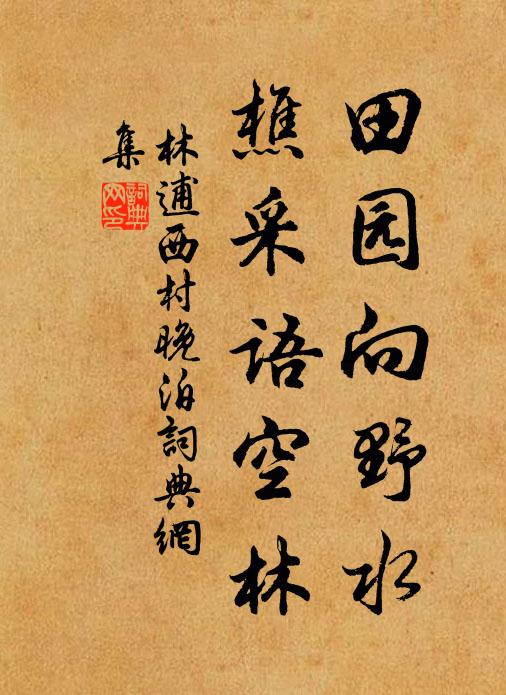 田园向野水
樵采语空林
林逋西村晚泊詞典網
集
詞典
网印